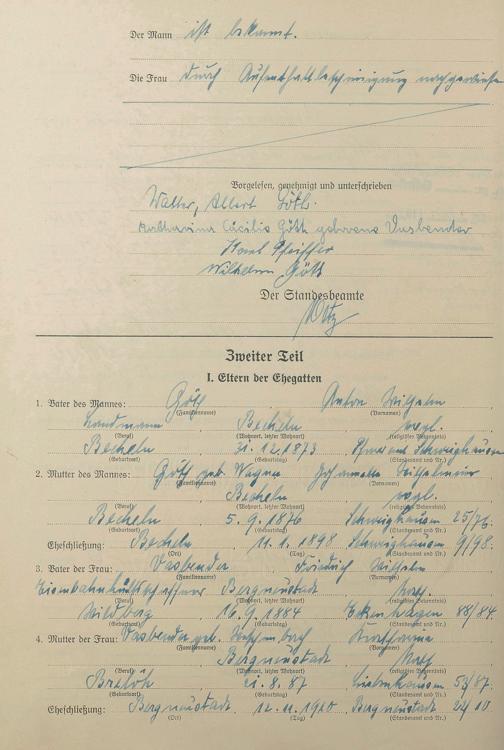 Der Mann ist bekannt.
Die Frau durch Aufenthaltsbescheinigung nachgewiesen
Vorgelesen, genehmigt und unterschrieben
Walter, Albert Göth.
Katharina Cäcilie Göth geborene Vasbender
Karl Pfeiffer
Wilhelm Göth
Der Standesbeamte
Zweiter Teil
I. Eltern der Ehegatten
1. Vater des Mannes: Göth Anton Wilhelm
(Familienname) (Vornamen)
Landmann Becheln evgl.
(Beruf) (Wohnort, letzter Wohnort) (religiöses Bekenntnis)
Becheln 31.12.1873 Pfarramt Schweighausen
(Geburtsort) (Geburtstag) (Standesamt und Nr.)
2. Mutter des Mannes: Göth geb. Wagner
(Familienname) (Vornamen)
Becheln evgl.
(Beruf) (Wohnort, letzter Wohnort) (religiöses Bekenntnis)
Becheln 5.9.1876 Schweighausen 25/76.
(Geburtsort) (Geburtstag) (Standesamt und Nr.)
Eheschließung: Becheln, 11.1.1898 Schweighausen 9/98.
(Ort) (Tag) (Standesamt und Nr.)
3. Vater der Frau: Vasbender Friedrich Wilhelm
(Familienname) (Vornamen)
Bergneustadt, kath.
(Beruf) (Wohnort, letzter Wohnort) (religiöses Bekenntnis)
Wildberg 16.9.1884 Eckenhagen 88/84.
(Geburtsort) (Geburtstag) (Standesamt und Nr.)
4. Mutter der Frau: Vasbender geb.
(Familienname) (Vornamen)
Bergneustadt, kath.
(Beruf) (Wohnort, letzter Wohnort) (religiöses Bekenntnis)
21.8.87 Lieberhausen 53/87.
(Geburtsort) (Geburtstag) (Standesamt und Nr.)
Eheschließung: Bergneustadt, 12.11.1910 Bergneustadt
(Ort) (Tag) (Standesamt und Nr.)